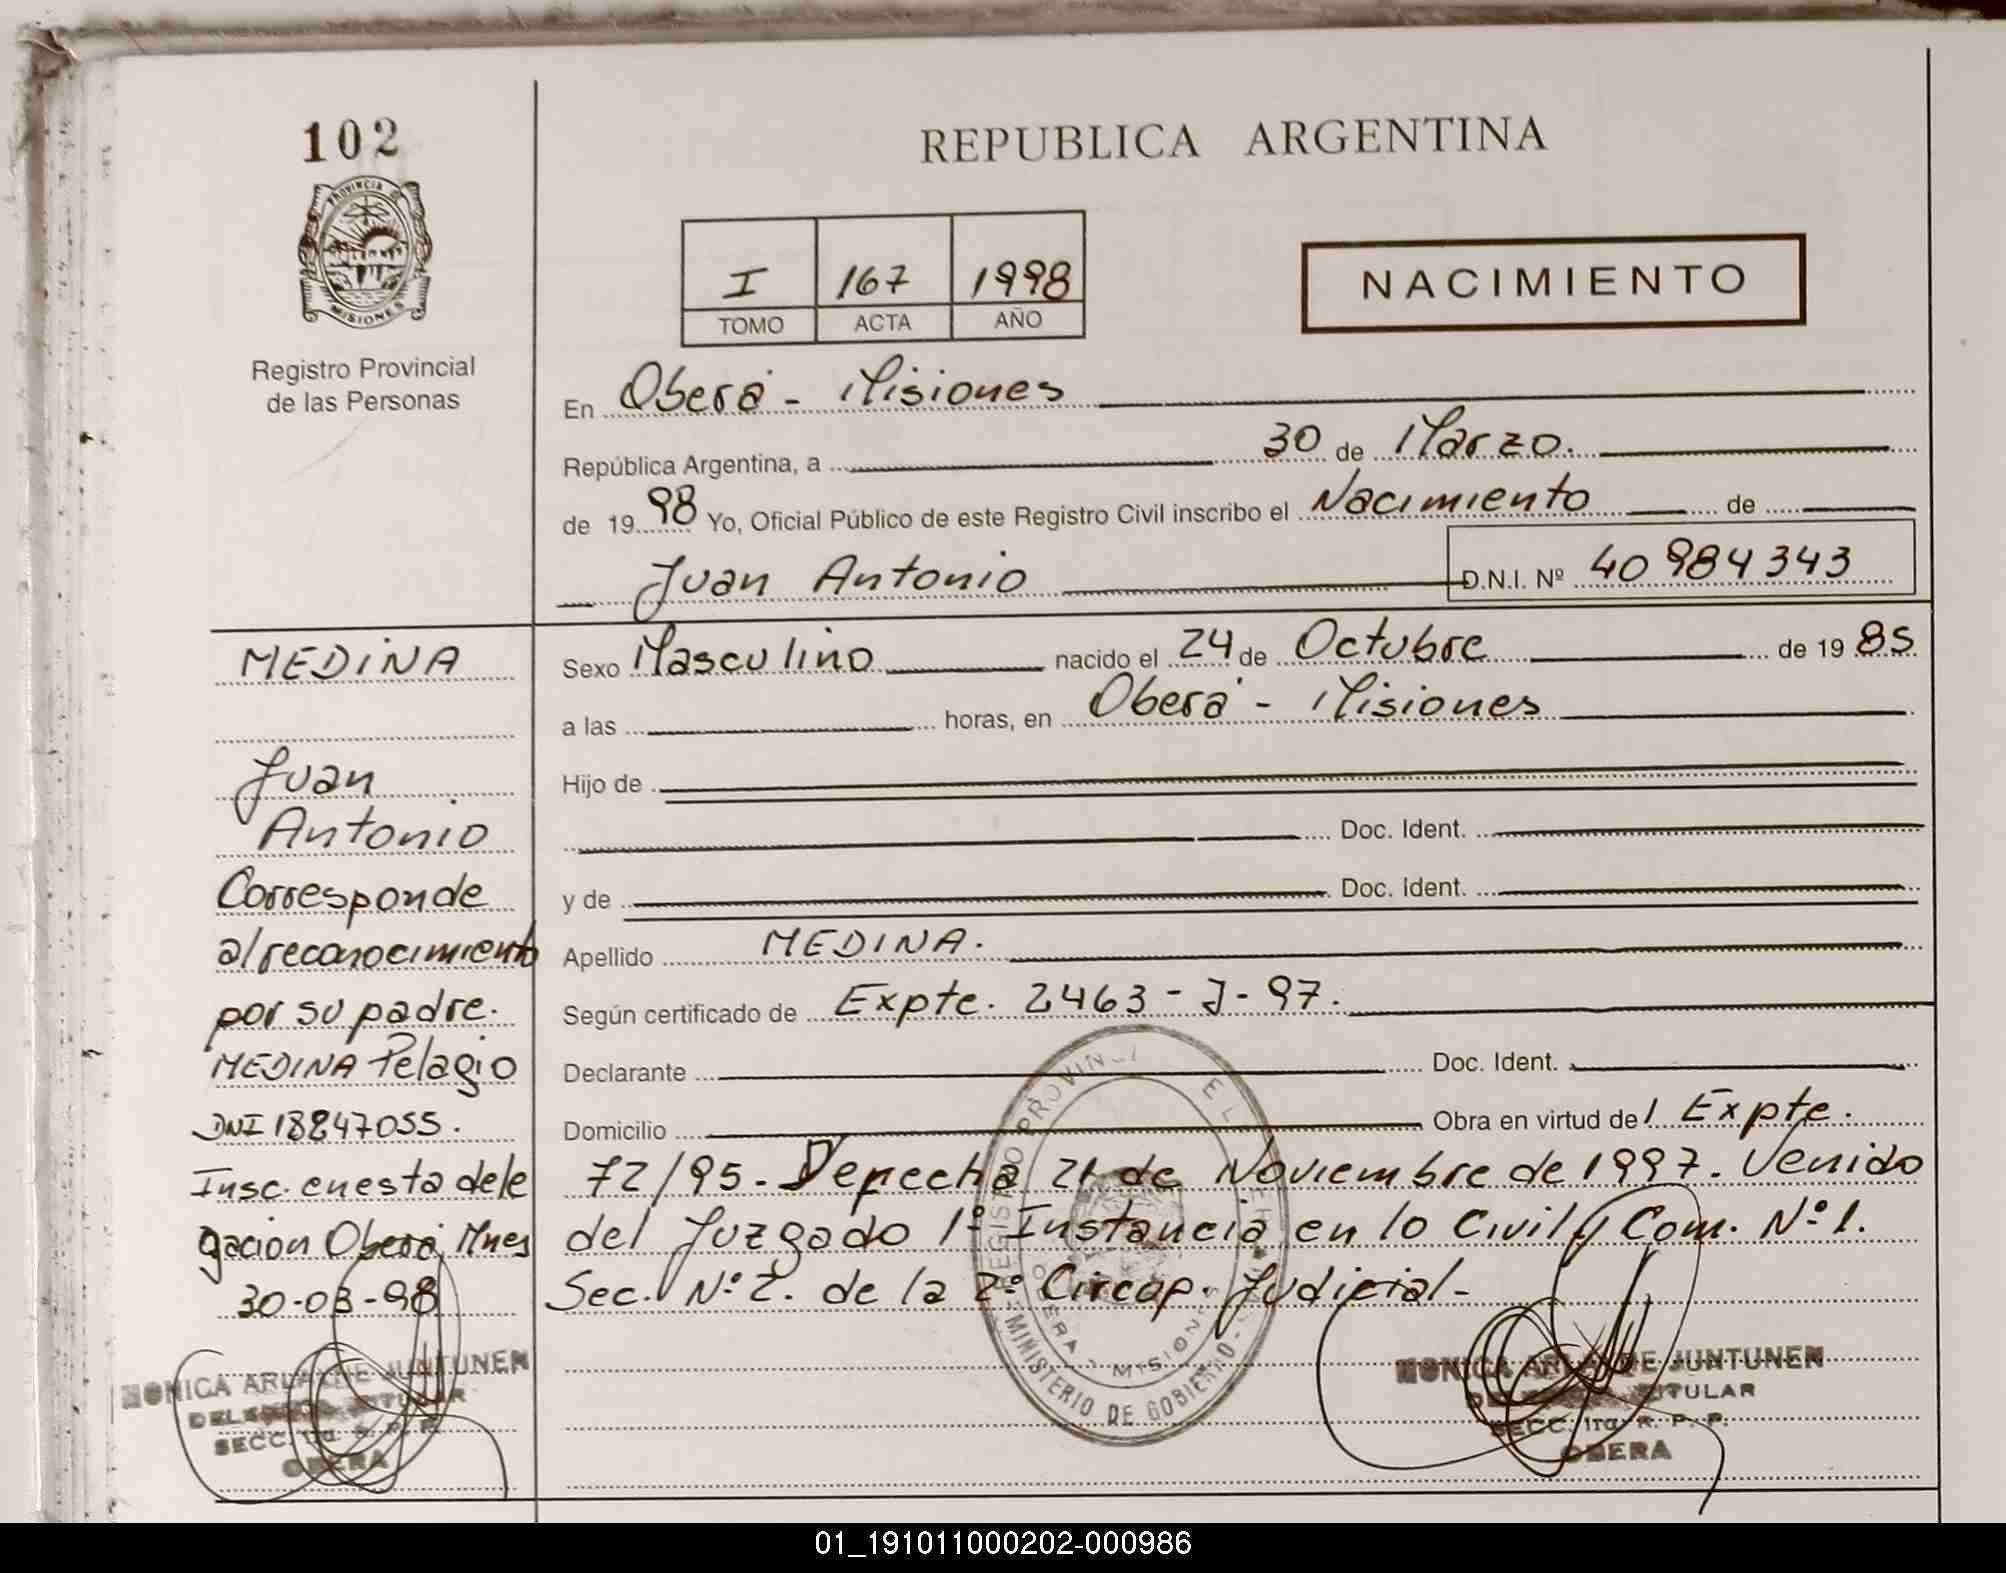 102
PROVINCIA DE
MISIONES
Registro Provincial
de las Personas
REPUBLICA ARGENTINA
I 167 1998
TOMO ACTA AÑO
NACIMIENTO
En Oberá - Misiones
República Argentina, a 30 de Marzo.
de 1998 Yo, Oficial Público de este Registro Civil inscribo el Nacimiento de
Juan Antonio D.N.I. Nº 40984343
Sexo Masculino nacido el 24 de Octubre de 1985
a las horas, en Oberá - Misiones
Hijo de
Doc. Ident.
y de Doc. Ident.
Apellido MEDINA.
Según certificado de Expte. 2463-J-97.
Declarante Doc. Ident.
Domicilio Obra en virtud de Expte.
72/95. De fecha 21 de Noviembre de 1997. Venido
del Juzgado 1º Instancia en lo Civil y Com. Nº 1.
Sec. Nº 2. de la 2º Circap. Judicial-
MEDINA
Juan
Antonio
Corresponde
al reconocimiento
por su padre.
MEDINA Pelagio
DNI 18847055.
Insc. en esta dele
gacion Oberá Mnes
30-03-98
MONICA DE JUNTUNEN
TITULAR
SECC. 1ra. R. P. P.
OBERA
REGISTRO PROVINCI EL
MINISTERIO DE GOBIERNO-
MISIONES
MONICA DE JUNTUNEN
TITULAR
SECC. 1ra. R. P. P.
OBERA
01_191011000202-000986